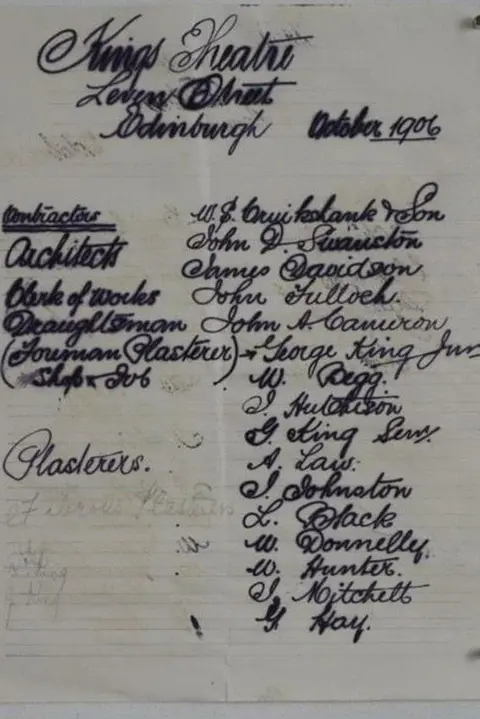 Kings Theatre
Leven Street
Edinburgh October 1906
Contractors W. S. Cruikshank & Son
Architects John D Swanston
James Davidson
Clerk of Works John Tulloch.
Draughtsman John A Cameron
(Foreman Plasterer) George King Jun
Shop & Job W. Begg.
J. Hutchison
G. King Senr.
Plasterers. A. Law.
J. Johnston
L. Black
W. Donnelly.
W. Hunter.
J. Mitchell
G. Hay.